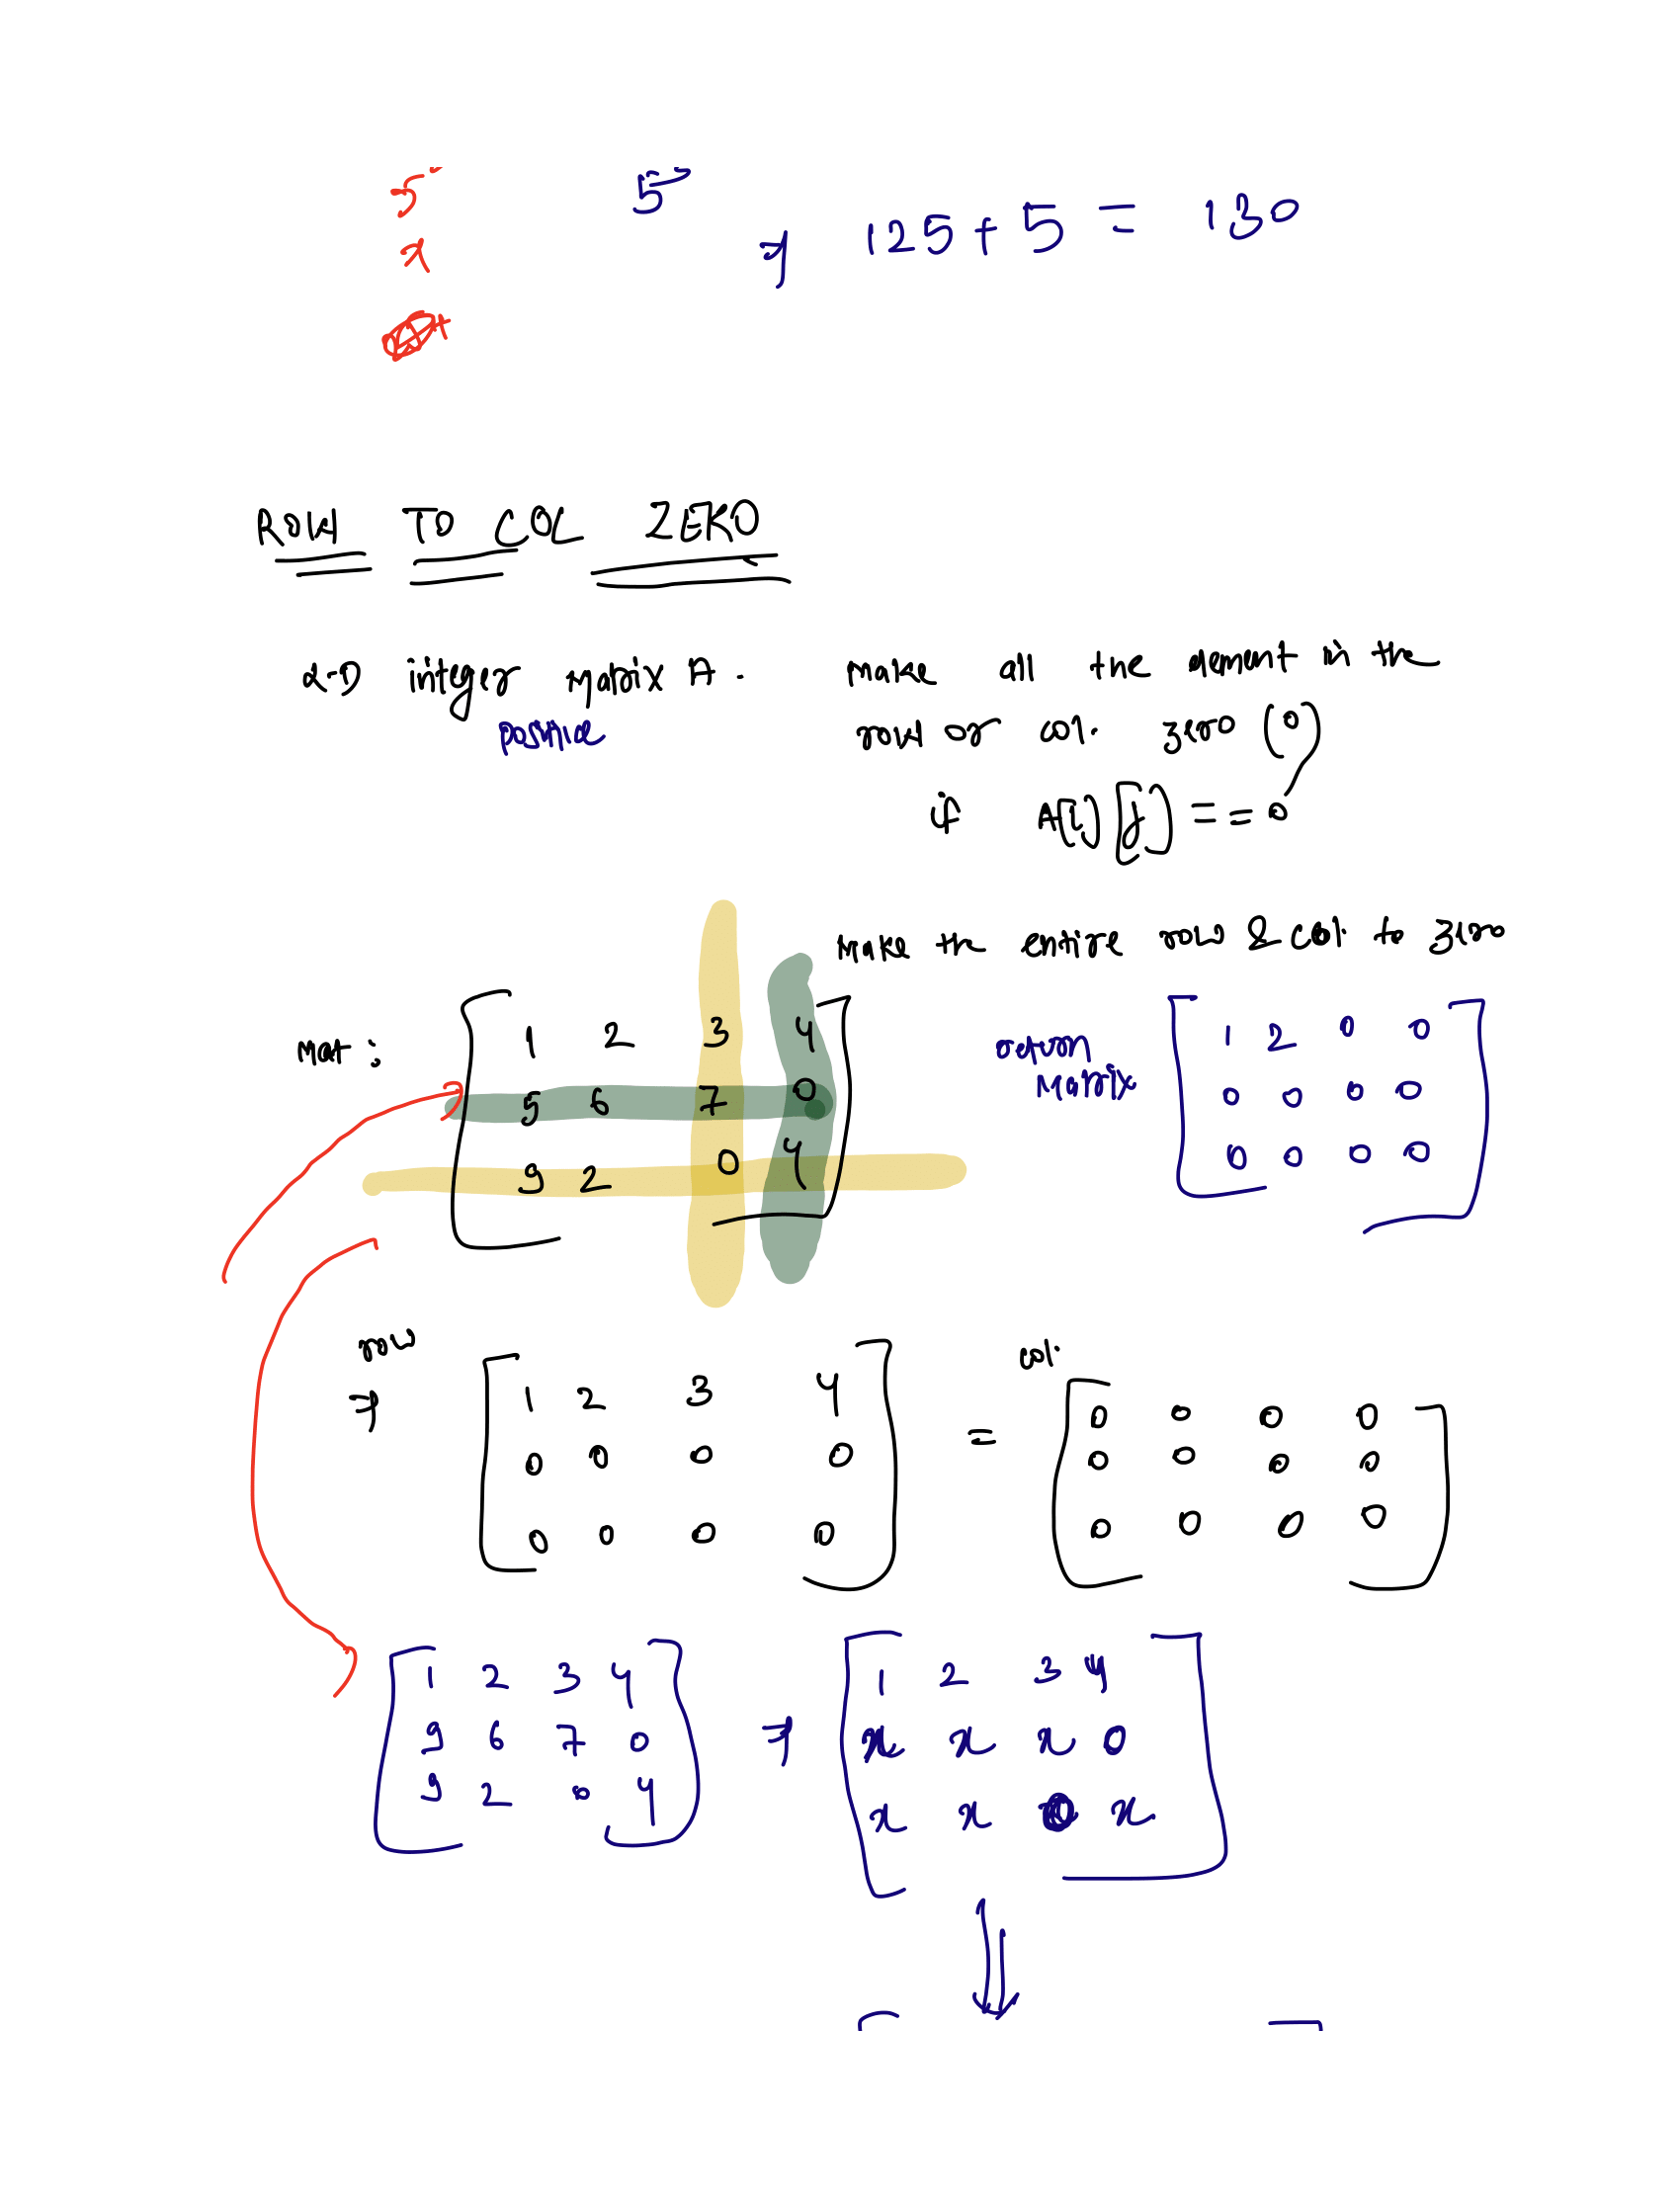 5
5
x
⇒ 125 + 5 = 130
ROW TO COL ZERO
2-D integer Matrix A. Make all the element in the
positive row or col. zero (0)
if A[i][j] == 0
Make the entire row & col. to zero
Mat: 1 2 3 4
5 6 7 0
9 2 0 4
return
Matrix
1 2 0 0
0 0 0 0
0 0 0 0
row
⇒ 1 2 3 4
0 0 0 0
0 0 0 0
col.
= 0 0 0 0
0 0 0 0
0 0 0 0
1 2 3 4
9 6 7 0
9 2 0 4
⇒ 1 2 3 4
x x x 0
x x 0 x